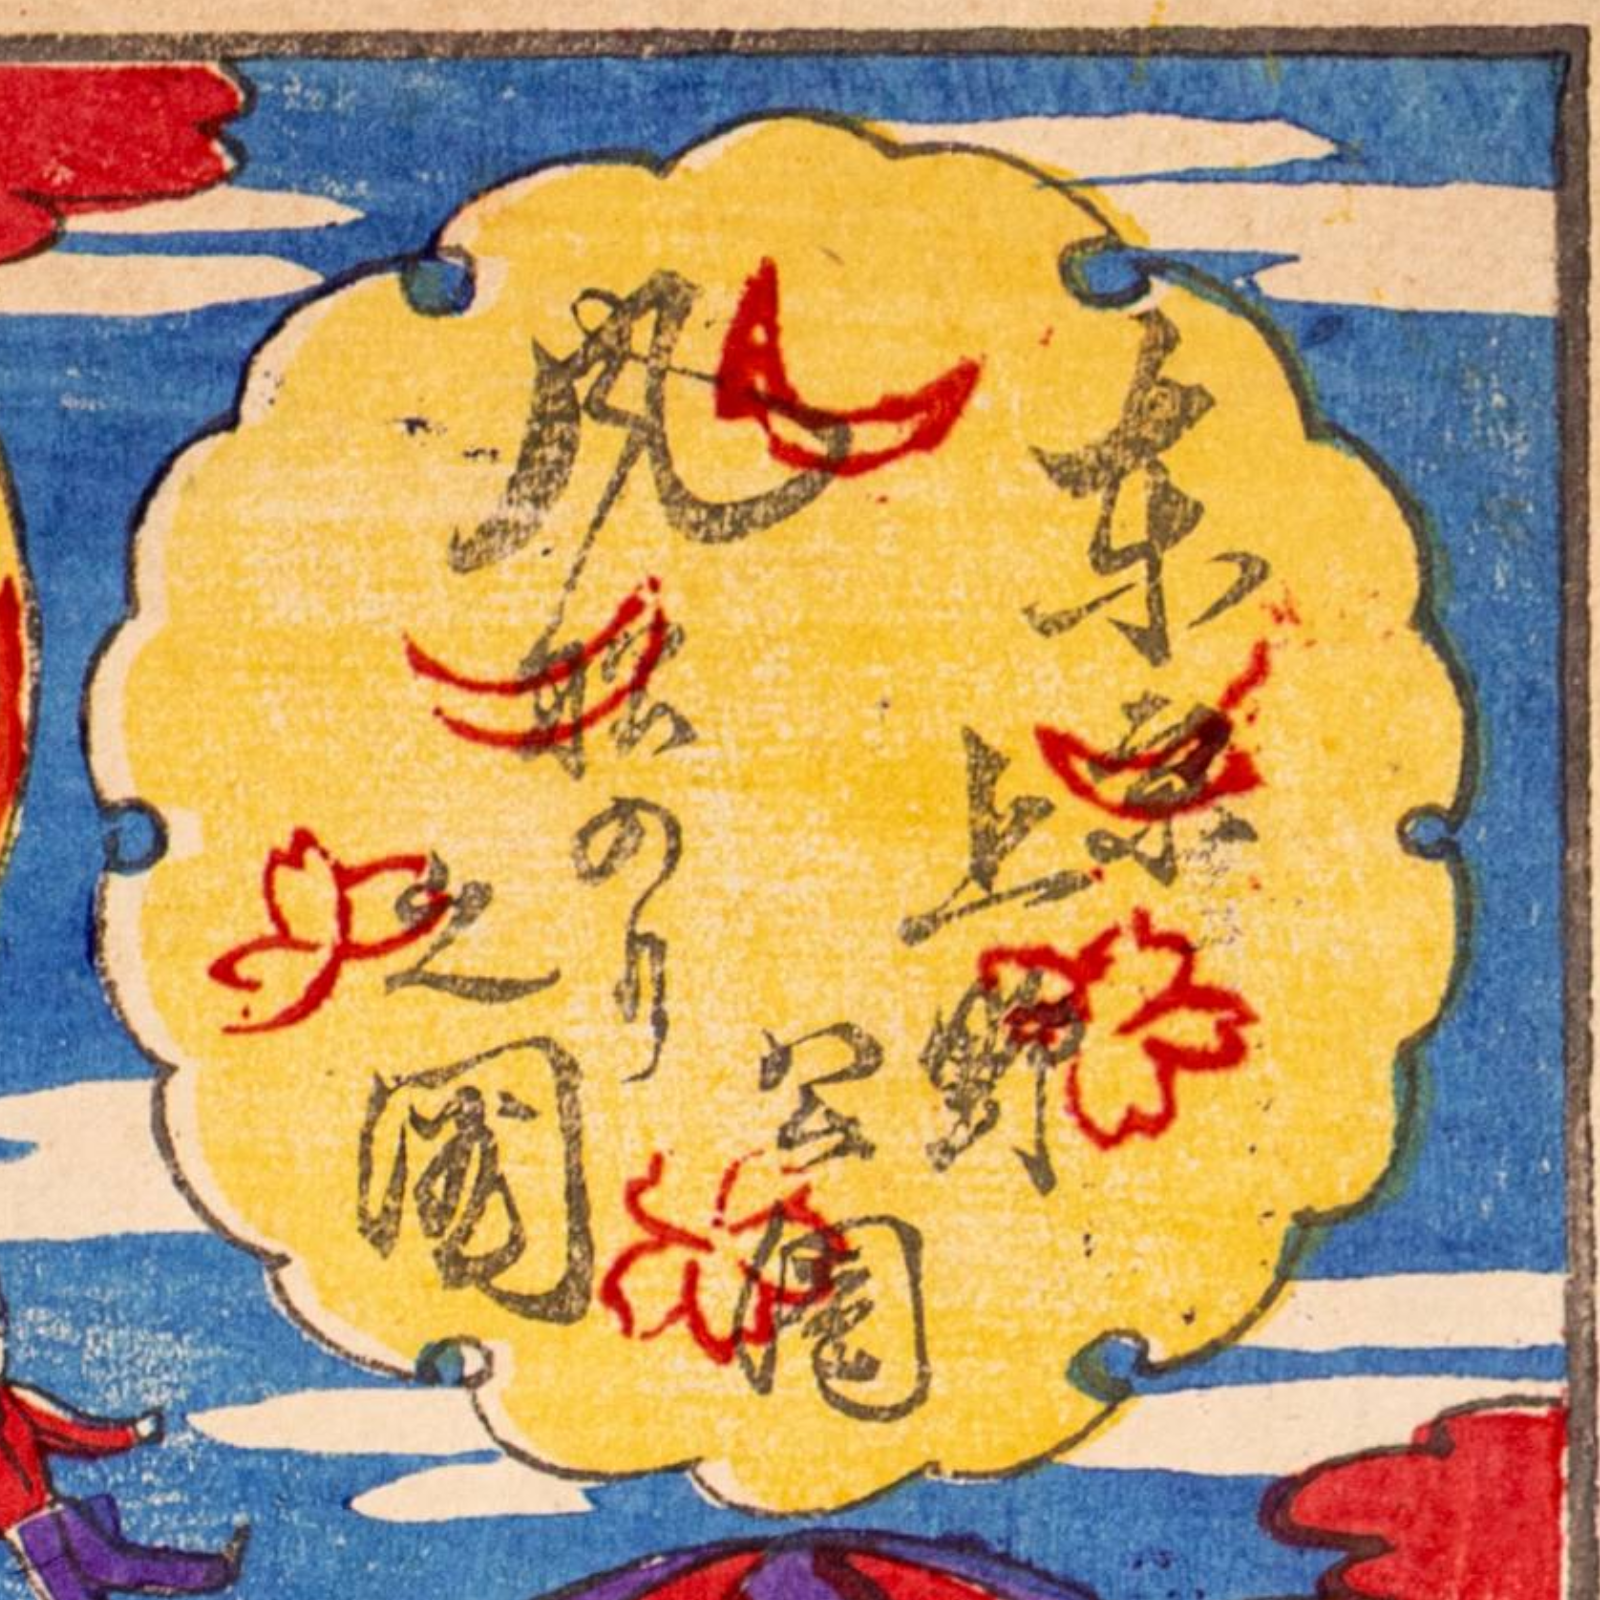 東京
上野
公園
風船のり
之圖